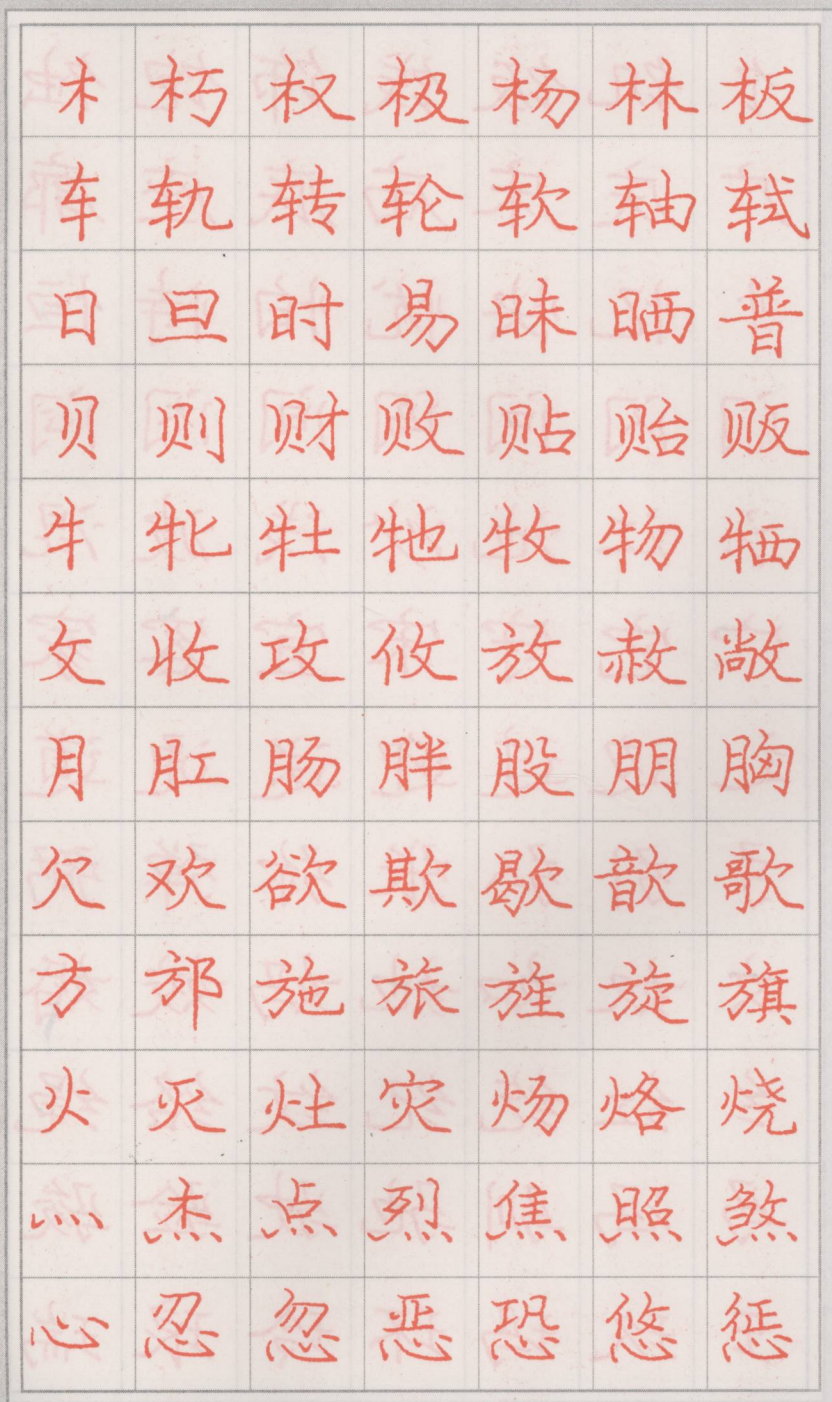 木 朽 权 极 杨 林 板
车 轨 转 轮 软 轴 轼
日 旦 时 易 昧 晒 普
贝 则 财 败 贴 贻 贩
牛 牝 牡 牠 牧 物 牺
攵 收 攻 攸 放 赦 敞
月 肛 肠 胖 股 朋 胸
欠 欢 欲 欺 歇 歆 歌
方 邡 施 旅 旌 旋 旗
火 灭 灶 灾 炀 烙 烧
灬 杰 点 烈 焦 照 煞
心 忍 忽 恶 恐 悠 惩